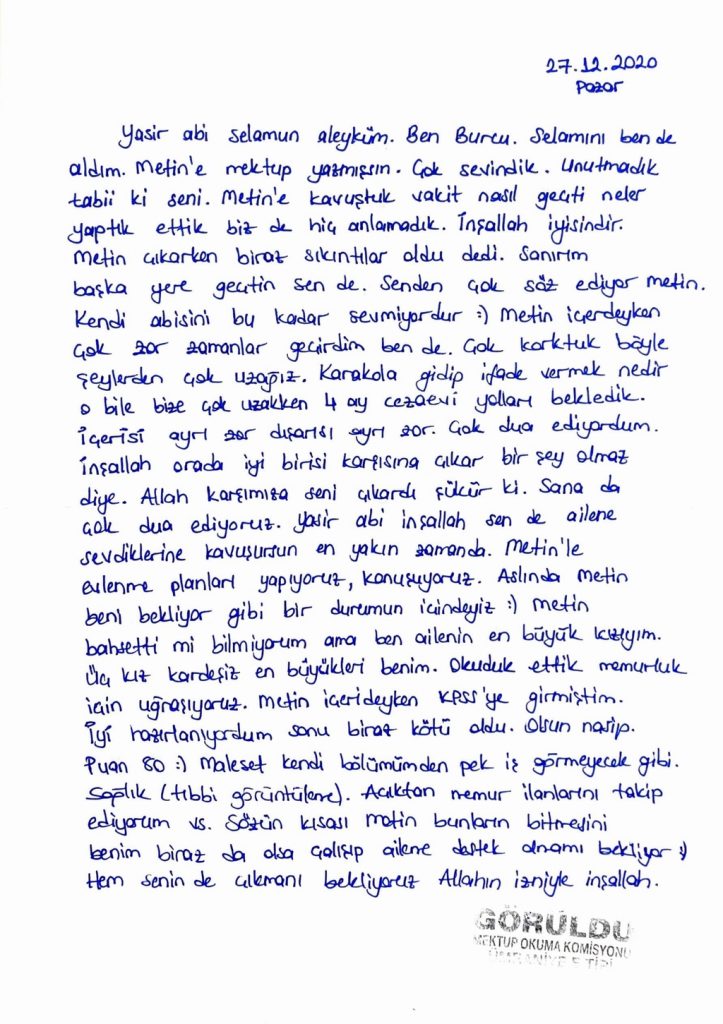 27.12.2020
Pazar
Yasir abi selamun aleyküm. Ben Burcu. Selamını ben de
aldım. Metin'e mektup yazmışsın. Çok sevindik. Unutmadık
tabii ki seni. Metin'e kavuştuk vakit nasıl geçti neler
yaptık ettik biz de hiç anlamadık. İnşallah iyisindir.
Metin çıkarken biraz sıkıntılar oldu dedi. Sanırım
başka yere geçtin sen de. Senden çok söz ediyor metin.
Kendi abisini bu kadar sevmiyordur :) Metin içerdeyken
çok zor zamanlar geçirdim ben de. Çok korktuk böyle
şeylerden çok uzağız. Karakola gidip ifade vermek nedir
o bile bize çok uzakken 4 ay cezaevi yolları bekledik.
İçerisi ayrı zor dışarısı ayrı zor. Çok dua ediyordum.
İnşallah orada iyi birisi karşısına çıkar bir şey olmaz
diye. Allah karşımıza seni çıkardı şükür ki. Sana da
çok dua ediyoruz. Yasir abi inşallah sen de ailene
sevdiklerine kavuşursun en yakın zamanda. Metin'le
evlenme planları yapıyoruz, konuşuyoruz. Aslında Metin
beni bekliyor gibi bir durumun içindeyiz :) Metin
bahsetti mi bilmiyorum ama ben ailenin en büyük kızıyım.
Üç kız kardeşiz en büyükleri benim. Okuduk ettik memurluk
için uğraşıyoruz. Metin içerideyken KPSS'ye girmiştim.
İyi hazırlanıyordum sonu biraz kötü oldu. Olsun nasip.
Puan 80 :) Malesef kendi bölümümden pek iş görmeyecek gibi.
Sağlık (tıbbi görüntüleme). Açıktan memur ilanlarını takip
ediyorum vs. Sözün kısası metin bunların bitmesini
benim biraz da olsa çalışıp ailene destek olmamı bekliyor :)
Hem senin de çıkmanı bekliyoruz Allahın izniyle inşallah.
GÖRÜLDÜ
MEKTUP OKUMA KOMİSYONU
ÜMRANİYE E TİPİ